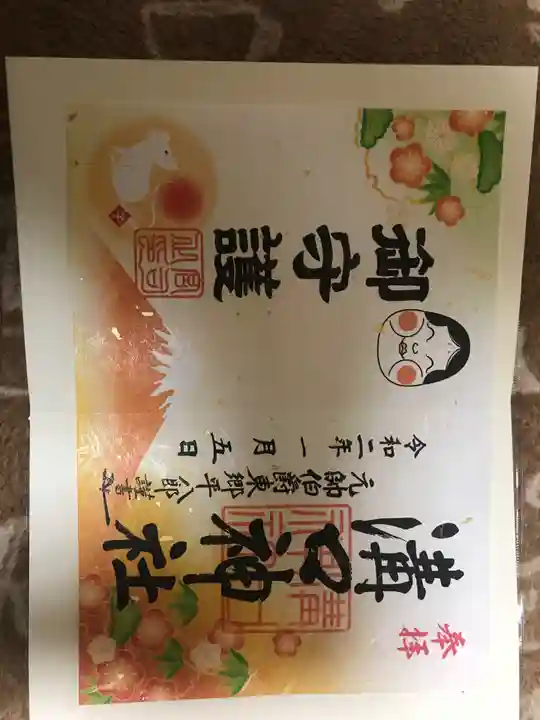 奉拝
溝口神社
元帥伯爵東郷平八郎謹書
令和二年一月五日
御守護